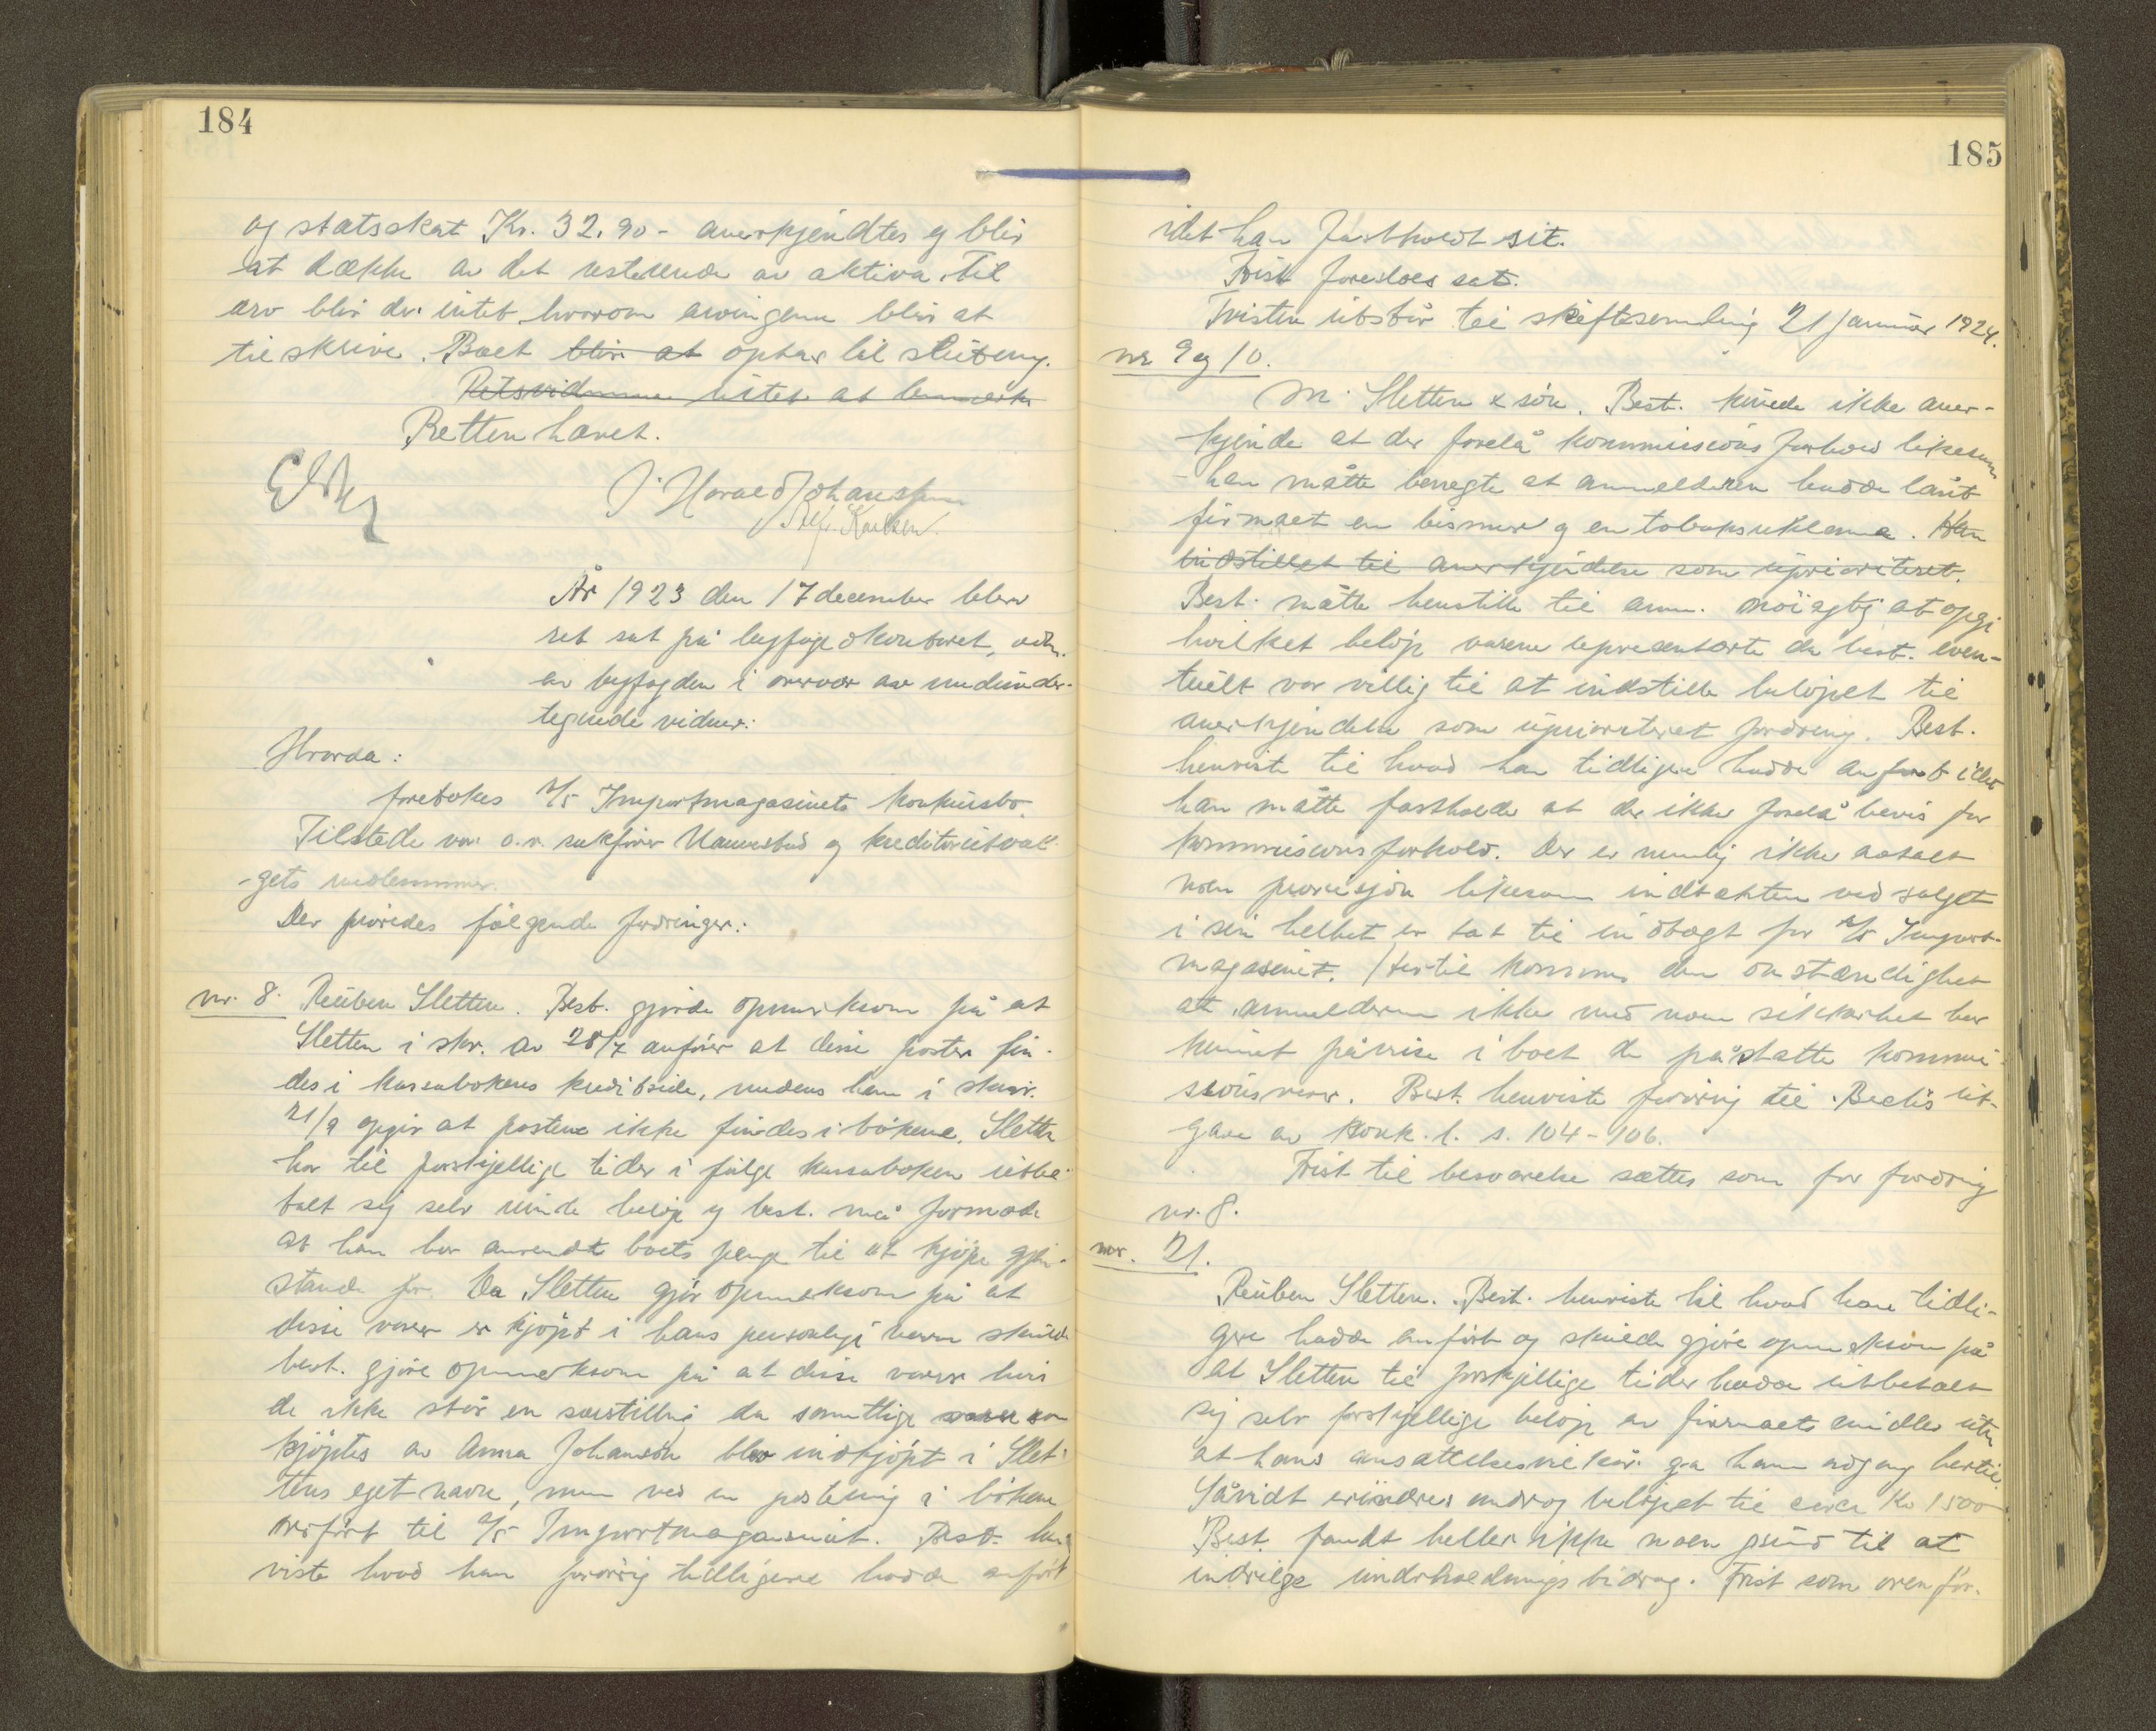 184
og statsskat Kr. 32.90 - anerkjendtes og blir
at dække av det resterende av aktiva. Til
arv blir der intet hvorom arvingene blir at
tilskrive. Boet blir at optar til slutning.
Retsvidnene intet at bemerke
Retten hævet.
J. Harald Johanssen
Karlsen.
År 1923 den 17 december blev
ret sat på byfogdkontoret, adm.
av byfogden i overvær av medunder-
tegnede vidner:
Hvorda:
foretokes A/S Importmagasinets konkursbo.
Tilstede var o.r. sakfører Namnstad og kreditorutval-
gets medlemmer.
Der prøvedes følgende fordringer:
nr. 8. Reuben Sletten. Best. gjorde opmerksom på at
Sletten i skr. av 28/7 anfører at disse poster fin-
des i kassabokens kreditside, medens han i skriv.
21/9 opgir at postene ikke findes i bøkene. Sletten
har til forskjellige tider i følge kassaboken utbe-
talt sig selv minde beløp og best. må formode
at han har anvendt boets penge til at kjøpe gjen-
stande for. Da Sletten gjør opmerksom på at
disse varer er kjøpt i hans personlige navn skulde
best. gjøre opmerksom på at disse varer hvis
de ikke står en særstilling da samtlige varer som
kjøptes av Anna Johansen blev indkjøpt i Slet-
tens eget navn, men ved en postering i bøkene
overført til A/S Importmagasinet. Best. hen-
viste hvad han forøvrig tidligere hadde anført
185
idet han fastholdt sit.
Frist foresloes sat.
Tvisten utstår til skiftesamling 21 januar 1924.
nr 9 og 10.
M. Sletten & søn. Best. kunde ikke aner-
kjende at der forelå kommissions forhold likesom
han måtte benegte at anmelderen hadde lånt
firmaet en bismer og en tobaksreklame. Han
indstillet til anerkjendelse som uprioriteret.
Best. måtte henstille til anm. nøiagtig at opgi
hvilket beløp varene representerte da best. even-
tuelt var villig til at indstille beløpet til
anerkjendelse som uprioriteret fordring. Best.
henviste til hvad han tidligere hadde anført idet
han måtte fastholde at der ikke forelå bevis for
kommissionsforhold. Der er nemlig ikke avtalt
noen provisjon likesom indtækten ved salget
i sin helhet er tat til indtægt for A/S Import-
magasinet. Hertil kommer den omstændighet
at anmelderen ikke med noen sikkerhet har
kunnet påvise i boet de påståtte kommis-
sionsvarer. Best. henviste forøvrig til Beclis ut-
gave av konk. l. s. 104-106.
Frist til besvarelse sættes som for fordring
nr. 8.
nr. 21.
Reuben Sletten. Best. henviste til hvad han tidli-
gere hadde anført og skulde gjøre opmerksom på
at Sletten til forskjellige tider hadde utbetalt
sig selv forskjellige beløp av firmaets midler uten
at hans ansættelsesvilkår ga ham adgang hertil.
Såvidt erindres androg beløpet til circa Kr 1500
Best. fandt heller ikke noen grund til at
indvilge underholdningsbidrag. Frist som ovenfor.